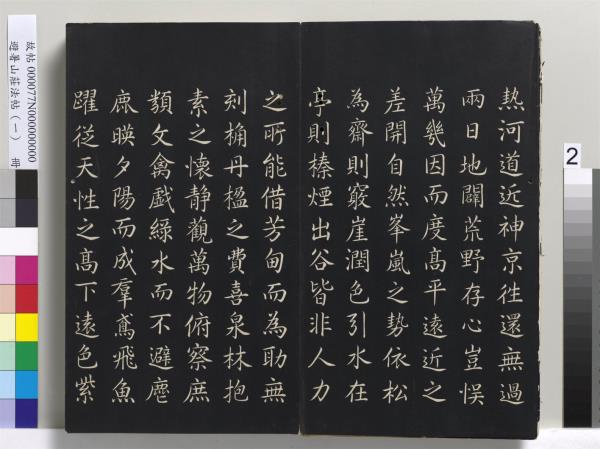 熱河道近神京往還無過
兩日地闢荒野存心豈悞
萬幾因而度髙平遠近之
差開自然峯嵐之勢依松
為齋則竅崖潤色引水在
亭則榛煙出谷皆非人力
之所能借芳甸而為助無
刻桷丹楹之費喜泉林抱
素之懷静觀萬物俯察庶
類文禽戲綠水而不避麀
鹿暎夕陽而成羣鳶飛魚
躍從天性之髙下遠色紫
故帖 000077N000000000
避暑山莊法帖（一） 冊
2